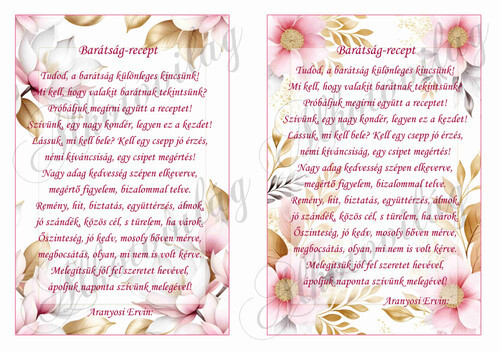 Barátság-recept
Tudod, a barátság különleges kincsünk!
Mi kell, hogy valakit barátnak tekintsünk?
Próbáljuk megírni együtt a receptet!
Szívünk, egy nagy kondér, legyen ez a kezdet!
Lássuk, mi kell bele? Kell egy csepp jó érzés,
némi kíváncsiság, egy csipet megértés!
Nagy adag kedvesség szépen elkeverve,
megértő figyelem, bizalommal telve.
Remény, hit, biztatás, együttérzés, álmok,
jó szándék, közös cél, s türelem, ha várok.
Őszinteség, jó kedv, mosoly bőven mérve,
megbocsátás, olyan, mi nem is volt kérve.
Melegítsük jól fel szeretet hevével,
ápoljuk naponta szívünk melegével!
Aranyosi Ervin:
Barátság-recept
Tudod, a barátság különleges kincsünk!
Mi kell, hogy valakit barátnak tekintsünk?
Próbáljuk megírni együtt a receptet!
Szívünk, egy nagy kondér, legyen ez a kezdet!
Lássuk, mi kell bele? Kell egy csepp jó érzés,
némi kíváncsiság, egy csipet megértés!
Nagy adag kedvesség szépen elkeverve,
megértő figyelem, bizalommal telve.
Remény, hit, biztatás, együttérzés, álmok,
jó szándék, közös cél, s türelem, ha várok.
Őszinteség, jó kedv, mosoly bőven mérve,
megbocsátás, olyan, mi nem is volt kérve.
Melegítsük jól fel szeretet hevével,
ápoljuk naponta szívünk melegével!
Aranyosi Ervin: